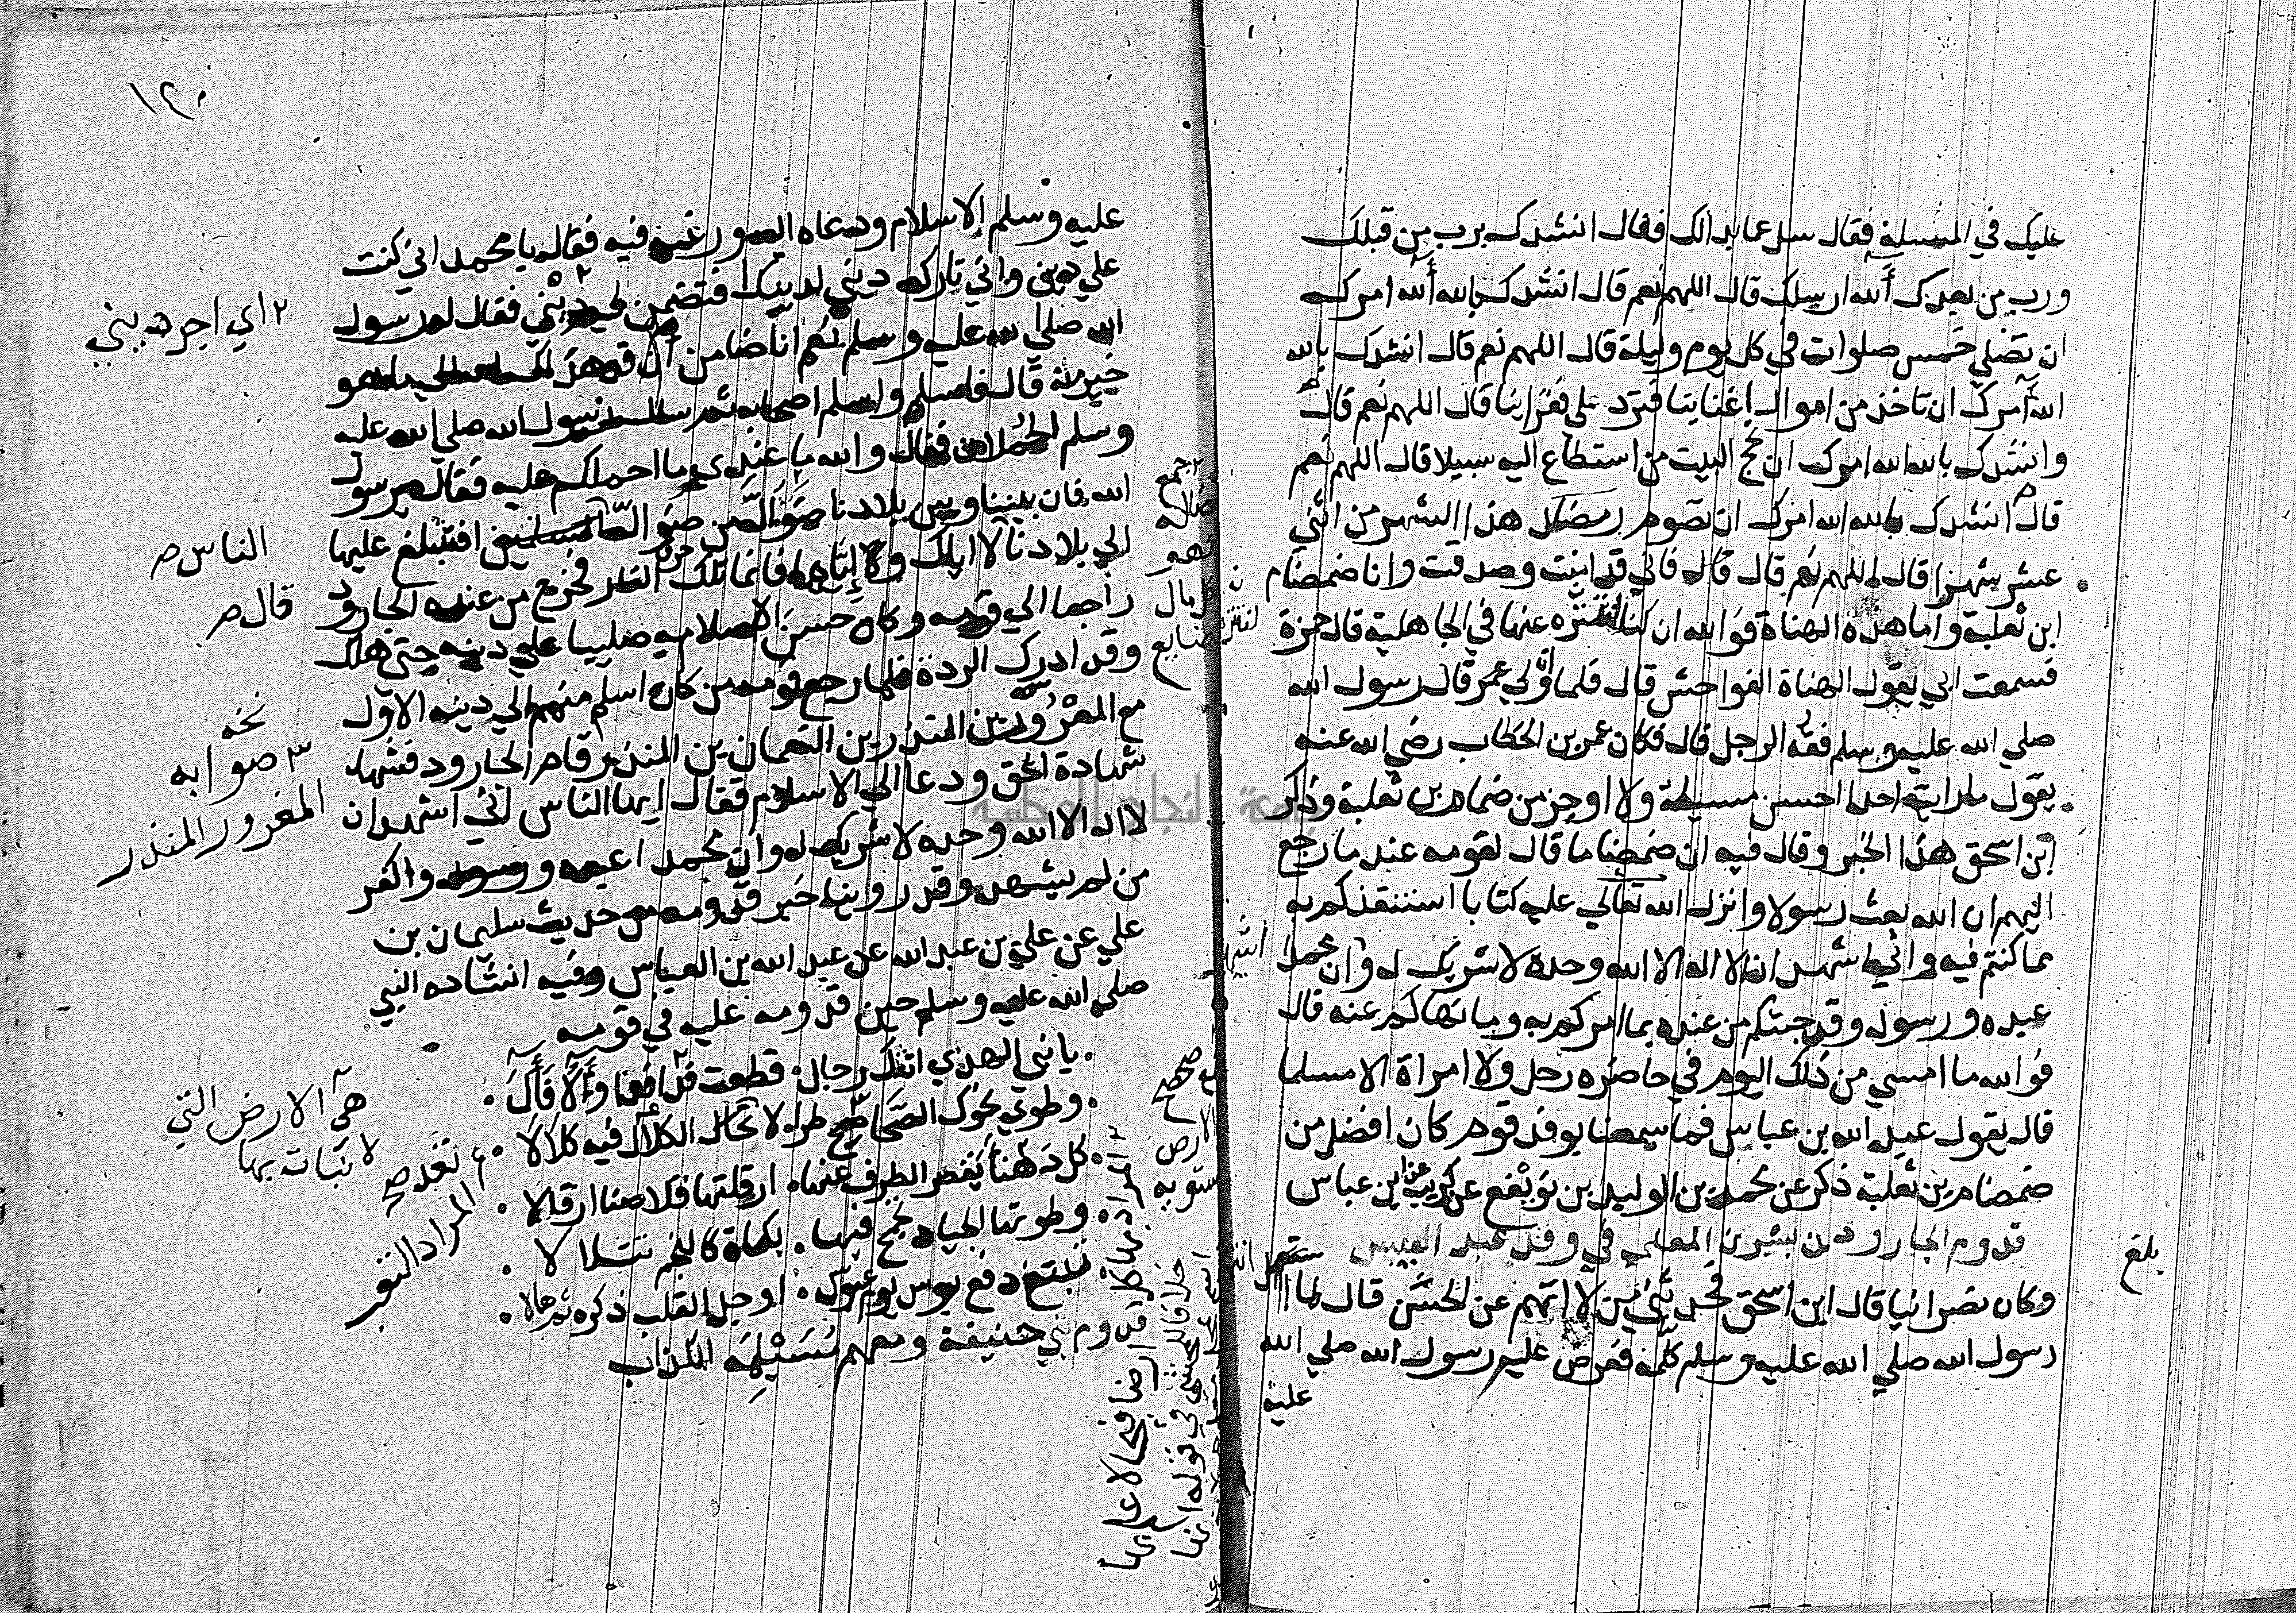 عليك في المسلة فقال سل عما بدالك فقال انشدك برب من قبلك
ورب من بعدك آلله ارسلك قال اللهم نعم قال انشدك بالله آلله امرك
ان نصلي خمس صلوات في كل يوم وليلة قال اللهم نعم قال انشدك بالله
آلله امرك ان تاخذ من اموال اغنيائنا فترد على فقرائنا قال اللهم نعم قال
وانشدك بالله الله امرك ان نحج البيت من استطاع اليه سبيلا قال اللهم نعم
قال انشدك بالله الله امرك ان نصوم رمضان هذا الشهر من اثني
عشر شهرا قال اللهم نعم قال فاني قد امنت وصدقت وانا ضمام
ابن ثعلبة واما هذه الهناة فوالله ان كنا لنتنزه عنها في الجاهلية قال حمزة
فسمعت ابي يقول الهناة الفواحش قال فلما ولي عمر قال رسول الله
صلي الله عليه وسلم فقه الرجل قال فكان عمر بن الخطاب رضي الله عنه
يقول ما رايت احدا احسن مسيلة ولا اوجز من ضمام بن ثعلبة وذكر
ابن اسحق هذا الخبر وقال فيه ان ضماما قال لقومه عند ما رجع
اليهم ان الله بعث رسولا وانزل الله تعالي عليه كتابا استنقذكم به
مما كنتم فيه واني اشهد ان لا اله الا الله وحده لا شريك له وان محمدا
عبده ورسوله وقد جيتكم من عنده بما امركم به وما نهاكم عنه قال
فوالله ما امسي من ذلك اليوم في حاضره رجل ولا امراة الا مسلما
قال يقول عبد الله بن عباس فما سمعنا بوفد قوم كان افضل من
ضمام بن ثعلبة ذكر عن محمد بن الوليد بن نويفع عن كريب عن ابن عباس
قدوم الجارود بن بشر بن المعلى في وفد عبد القيس
بلغ
وكان نصرانيا قال ابن اسحق فحدثني من لا اتهم عن الحسن قال لما
رسول الله صلي الله عليه وسلم كلمه فعرض عليه رسول الله صلي الله
عليه
١٢٠
عليه وسلم الاسلام ودعاه اليه ورغبه فيه فقال يا محمد اني كنت
علي دين واني تارك ديني لدينك افتضمن لي ديني فقال له رسول
٢ اي اجر ديني
الله صلي الله عليه وسلم نعم انا ضامن ان قد هداك الله الي ما هو
خير منه قال فاسلم واسلم اصحابه ثم سال رسول الله صلي الله عليه
وسلم الحملان فقال والله ما عندي ما احملكم عليه فقال يرسول
الله فان بيننا وبين بلادنا ضوال من ضوال افنتبلغ عليها
الناس صح
الي بلادنا لا اياك واياها فانما تلك حرق النار فخرج من عنده الجارود
قال صح
راجعا الي قومه وكان حسن الاسلام صليبا علي دينه حتى هلك
وقد ادرك الردة فلما رجع قومه من كان اسلم منهم الي دينه الاول
مع المغرور بن المنذر بن النعمان بن المنذر قام الجارود فشهد
نخه
٣ صوابه
المغرور المنذر
شهادة الحق ودعا الي الاسلام فقال ايها الناس اني اشهد ان
لا اله الا الله وحده لا شريك له وان محمدا عبده ورسوله واكفر
من لم يشهد وقد روينا خبر قدومه من حديث سليمان بن
علي عن علي بن عبد الله عن عبد الله بن العباس وفيه انشاده النبي
صلي الله عليه وسلم حين قدومه عليه في قومه
يا نبي الهدي اتتك رجال قطعت فدفدا وآلا فآلا
هي الارض التي
لا نبات بها
وطوت نحوك الصحاصح طرا لا تخال الكلال فيه كلالا
كل دهنا يقصر الطرف عنها ارقلتها قلاصنا ارقالا
وطوتها الجياد تجمح فيها بكماة كانجم تتلالا
تبتغي دفع بوس يوم عبوس اوجل القلب ذكره ثم هالا
قدوم بني حنيفة ومعهم مسيلمة الكذاب